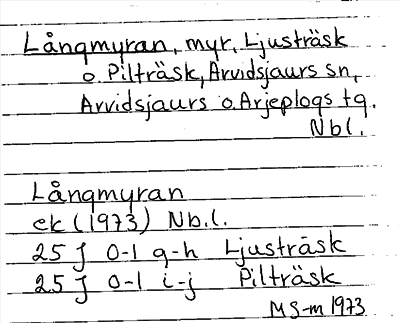 Långmyran, myr, Ljusträsk
o. Pilträsk, Arvidsjaurs sn,
Arvidsjaurs o. Arjeplogs tg.
Nbl.
Långmyran
ek (1973) Nb.l.
25 J 0-1 g-h Ljusträsk
25 J 0-1 i-j Pilträsk
MS-m 1973